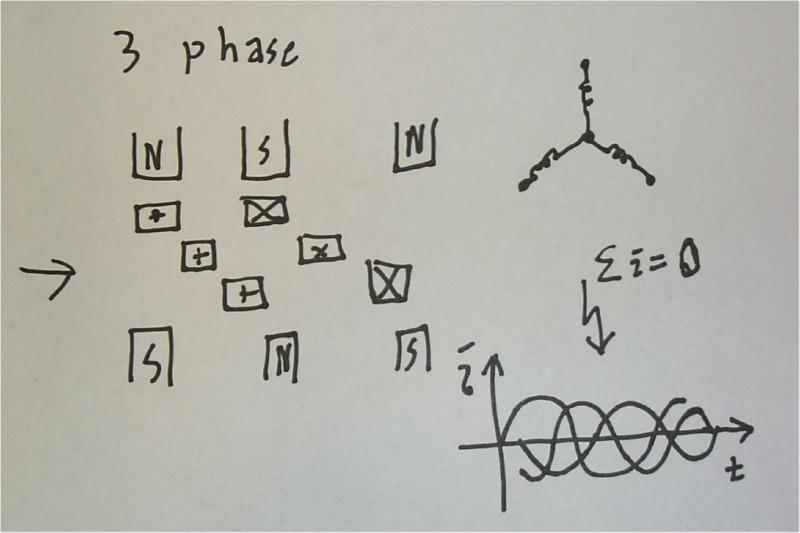 3 phase
N S N
+ X
+ x
+ X
S N S
Σ i = 0
i
t